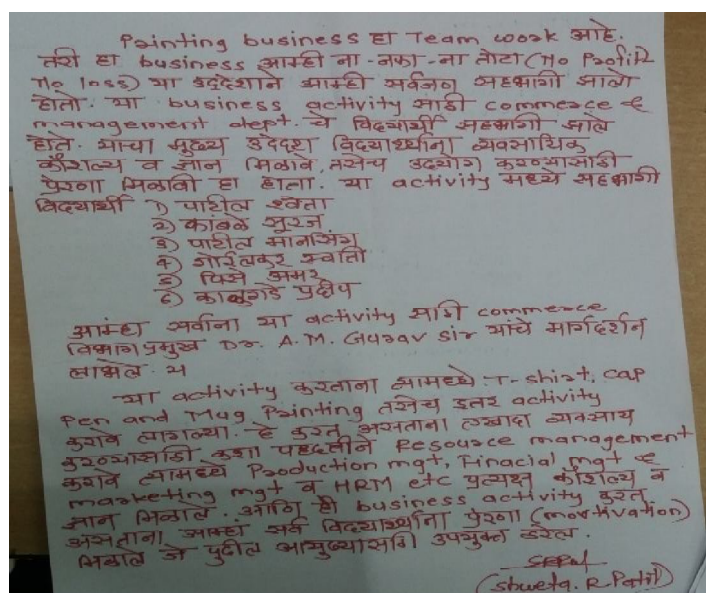 Painting business हा Team work आहे.
तरी हा business आम्ही ना-नफा-ना तोटा (No Profit
No loss) या उद्देशाने आम्ही सर्वजण सहभागी झालो
होतो. या business activity साठी commerce &
management dept. चे विद्यार्थी सहभागी झाले
होते. याचा मुख्य उद्देश विद्यार्थ्यांना व्यवसायिक
कौशल्य व ज्ञान मिळावे, तसेच उदयोग करण्यासाठी
प्रेरणा मिळावी हा होता. या activity मध्ये सहभागी
विद्यार्थी 1) पाटील श्वेता
2) कांबळे सुरज
3) पाटील मानसिंग
4) गोरुलकर स्वाती
5) पिसे अमर
6) काळुगडे प्रदीप
आम्हा सर्वांना या activity साठी commerce
विभागप्रमुख Dr. A. M. Gurav Sir यांचे मार्गदर्शन
लाभले.
या activity करताना त्यामध्ये T-shirt, cap
Pen and Mug Painting तसेच इतर activity
कराव्या लागल्या. हे करत असताना एखादा व्यवसाय
करण्यासाठी कशा पद्धतीने Resource management
करावे त्यामध्ये Production mgt, Finacial mgt &
marketing mgt व HRM etc प्रत्यक्ष कौशल्य व
ज्ञान मिळाले. आणि ही business activity करत
असताना आम्हा सर्व विद्यार्थ्यांना प्रेरणा (mortivation)
मिळाले जे पुढील आयुष्यासाठी उपयुक्त ठरेल.
(Shweta. R Patil)